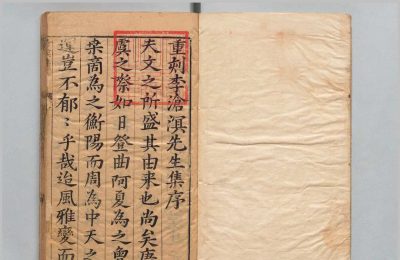 重刻李滄溟先生集序
夫文之所盛其由来也尚矣唐
虞之際如日登曲阿夏為之曾
桒商為之衡陽而周為中天之
運豈不郁〻乎哉迨風雅變而